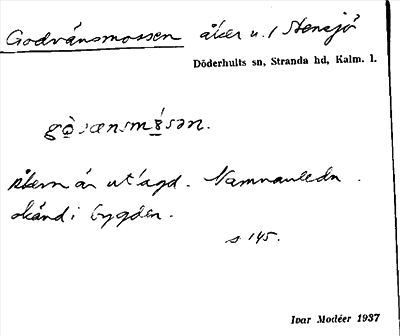 Godvänsmossen åker u. / Stensjö
Döderhults sn, Stranda hd, Kalm. l.
Åkern är utlagd. Namnanledn.
okänd i bygden.
s 145.
Ivar Modéer 1937